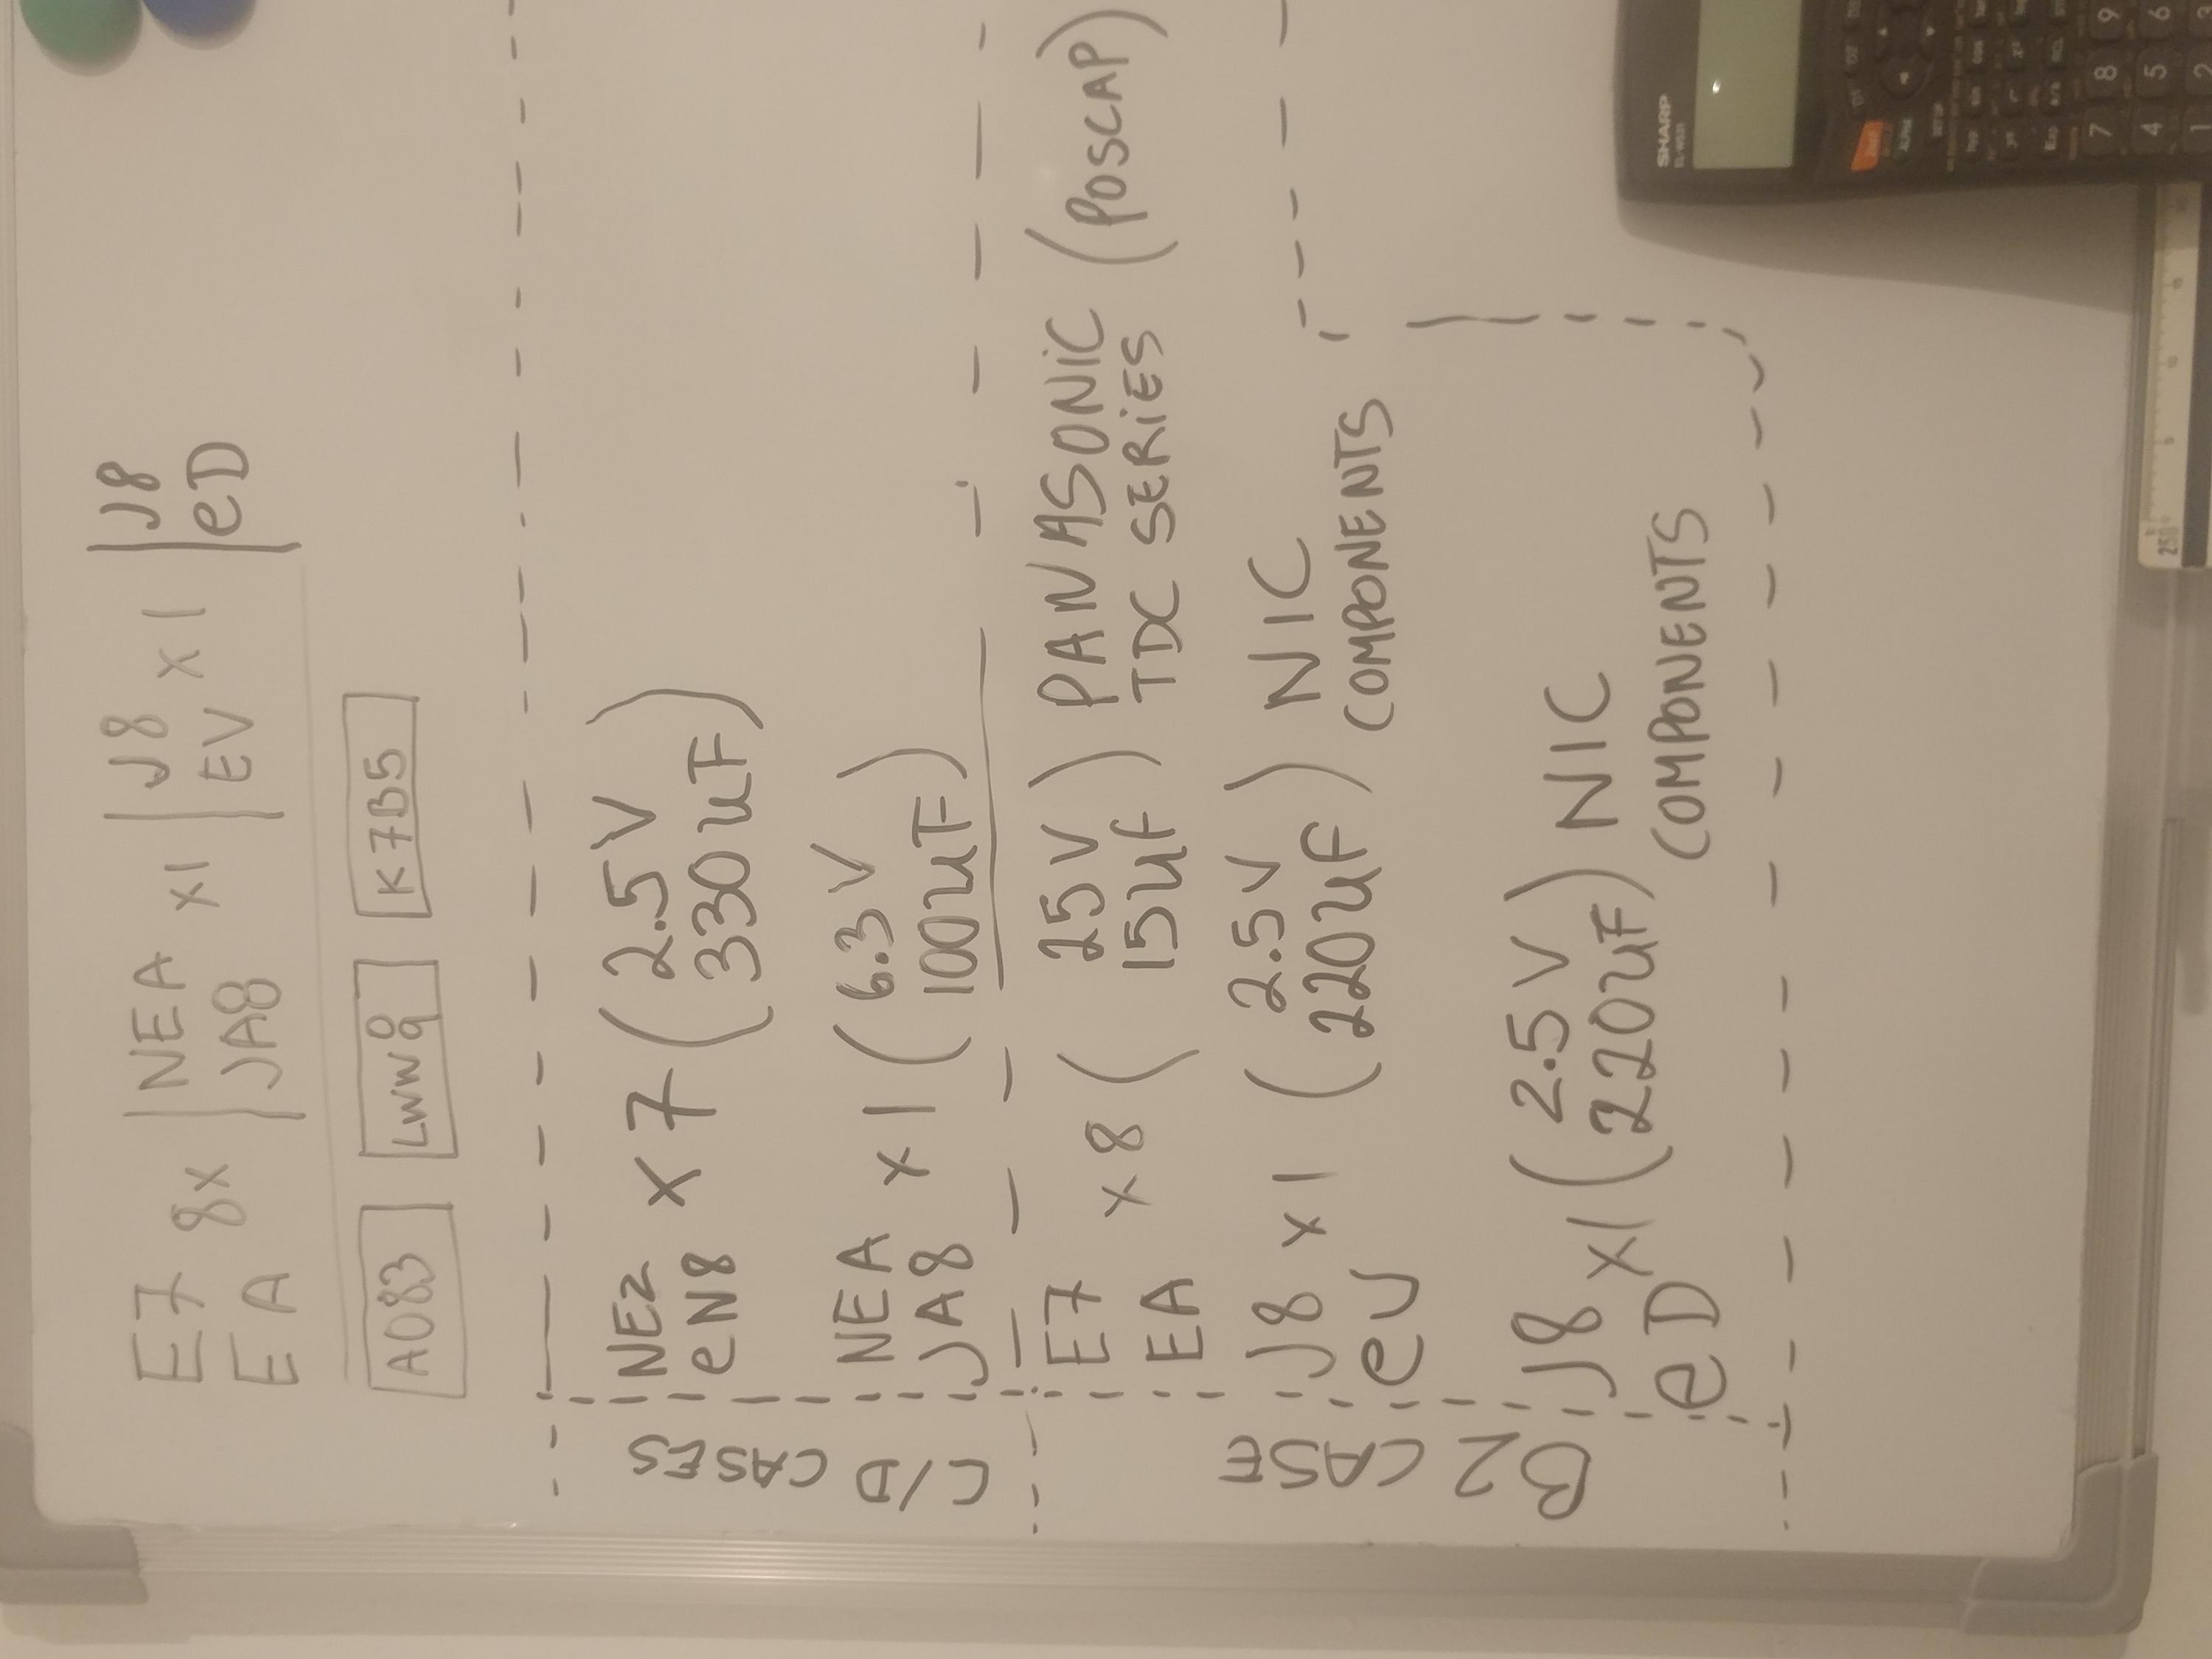 E7 8x |NEA x1 |J8 x1 |J8
EA |JA8 |EV |eD
A083 LWW9 K7B5
C/D CASES
NE2 x7 (2.5V)
eN8 (330uF)
NEA x1 (6.3V)
JA8 (100uF)
B2 CASE
E7 x8 (25V) PANASONIC (POSCAP)
EA 15uF TDC SERIES
J8 x1 (2.5V) NIC
eV (220uF) COMPONENTS
J8 x1 (2.5V) NIC
eD (220uF) COMPONENTS
SHARP
7 8 9
4 5 6
1 2 3
250